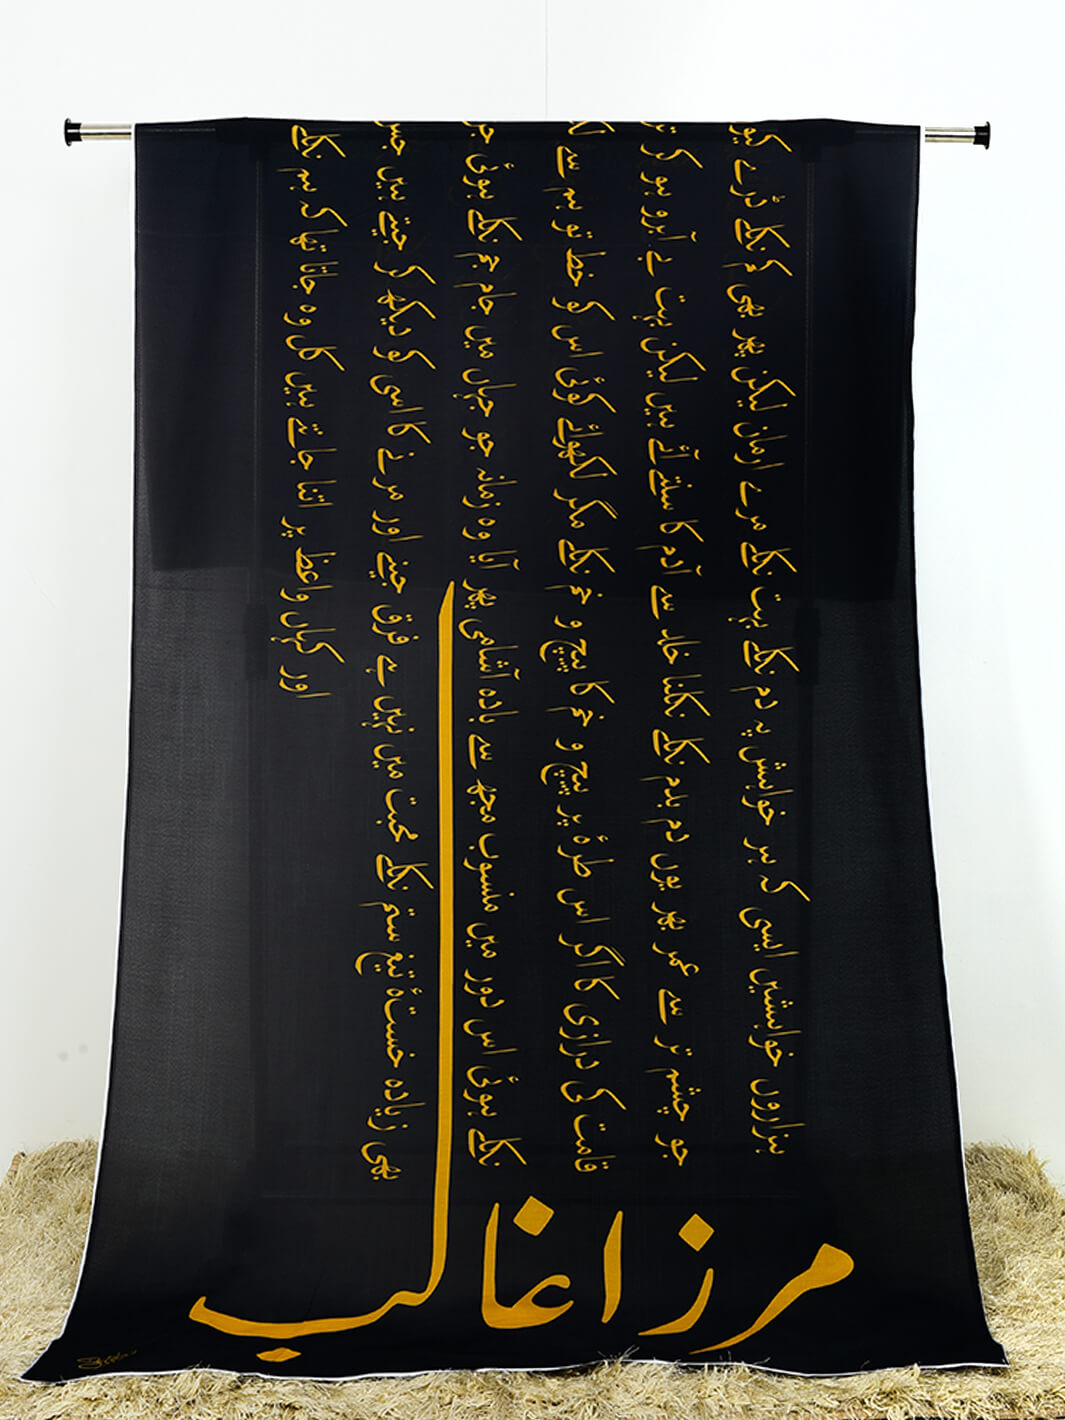 ہزاروں خواہشیں ایسی کہ ہر خواہش پہ دم نکلے بہت نکلے مرے ارمان لیکن پھر بھی کم نکلے ڈرے
جو چشم تر سے عمر بھر یوں دم بدم نکلے نکلنا خلد سے آدم کا سنتے آئے ہیں لیکن بہت بے آبرو ہو کر
قامت کی درازی کا اگر اس طرۂ پر پیچ و خم کا پیچ و خم نکلے مگر لکھوائے کوئی اس کو خط تو ہم سے
نکلے ہوئی اس دور میں منسوب مجھ سے بادہ آشامی پھر آیا وہ زمانہ جو جہاں میں جام جم نکلے ہوئی
بھی زیادہ خستۂ تیغ ستم نکلے محبت میں نہیں ہے فرق جینے اور مرنے کا اسی کو دیکھ کر جیتے ہیں
اور کہاں واعظ پر اتنا جانتے ہیں کل وہ جاتا تھا کہ ہم نکلے
مرزا غالب